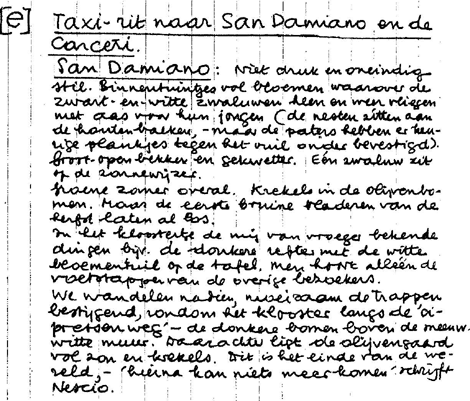 [e] Taxi-rit naar San Damiano en de
Carceri.
San Damiano: Niet druk en oneindig
stil. Binnentuintjes vol bloemen waarover de
zwart-en-witte zwaluwen heen en weer vliegen
met aas voor hun jongen (de nesten zitten aan
de houten balken, - maar de paters hebben er keu-
rige plankjes tegen het vuil onder bevestigd).
Groot open bekken en gekwetter. Eén zwaluw zit
op de zonnewijzer.
Groene zomer overal. Krekels in de olijvenbo-
men. Maar de eerste bruine bladeren van de
herfst laten al los.
In het kloostertje de mij van vroeger bekende
dingen bijv. de donkere refter met de witte
bloementuil op de tafel. Men hoort alléén de
voetstappen van de overige bezoekers.
We wandelen nadien, moeizaam de trappen
bestijgend, rondom het klooster langs de 'ci-
pressenweg' - de donkere bomen boven de meeuw-
witte muur. Daarachter ligt de olijvengaard
vol zon en krekels. Dit is het einde van de we-
reld, - 'hierna kan niets meer komen' schrijft
Nescio.